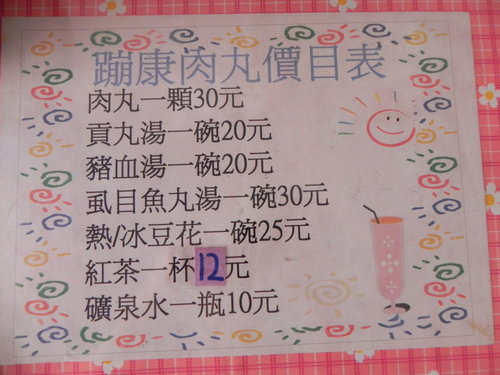 蹦康肉丸價目表
肉丸一顆30元
貢丸湯一碗20元
豬血湯一碗20元
虱目魚丸湯一碗30元
熱/冰豆花一碗25元
紅茶一杯12元
礦泉水一瓶10元